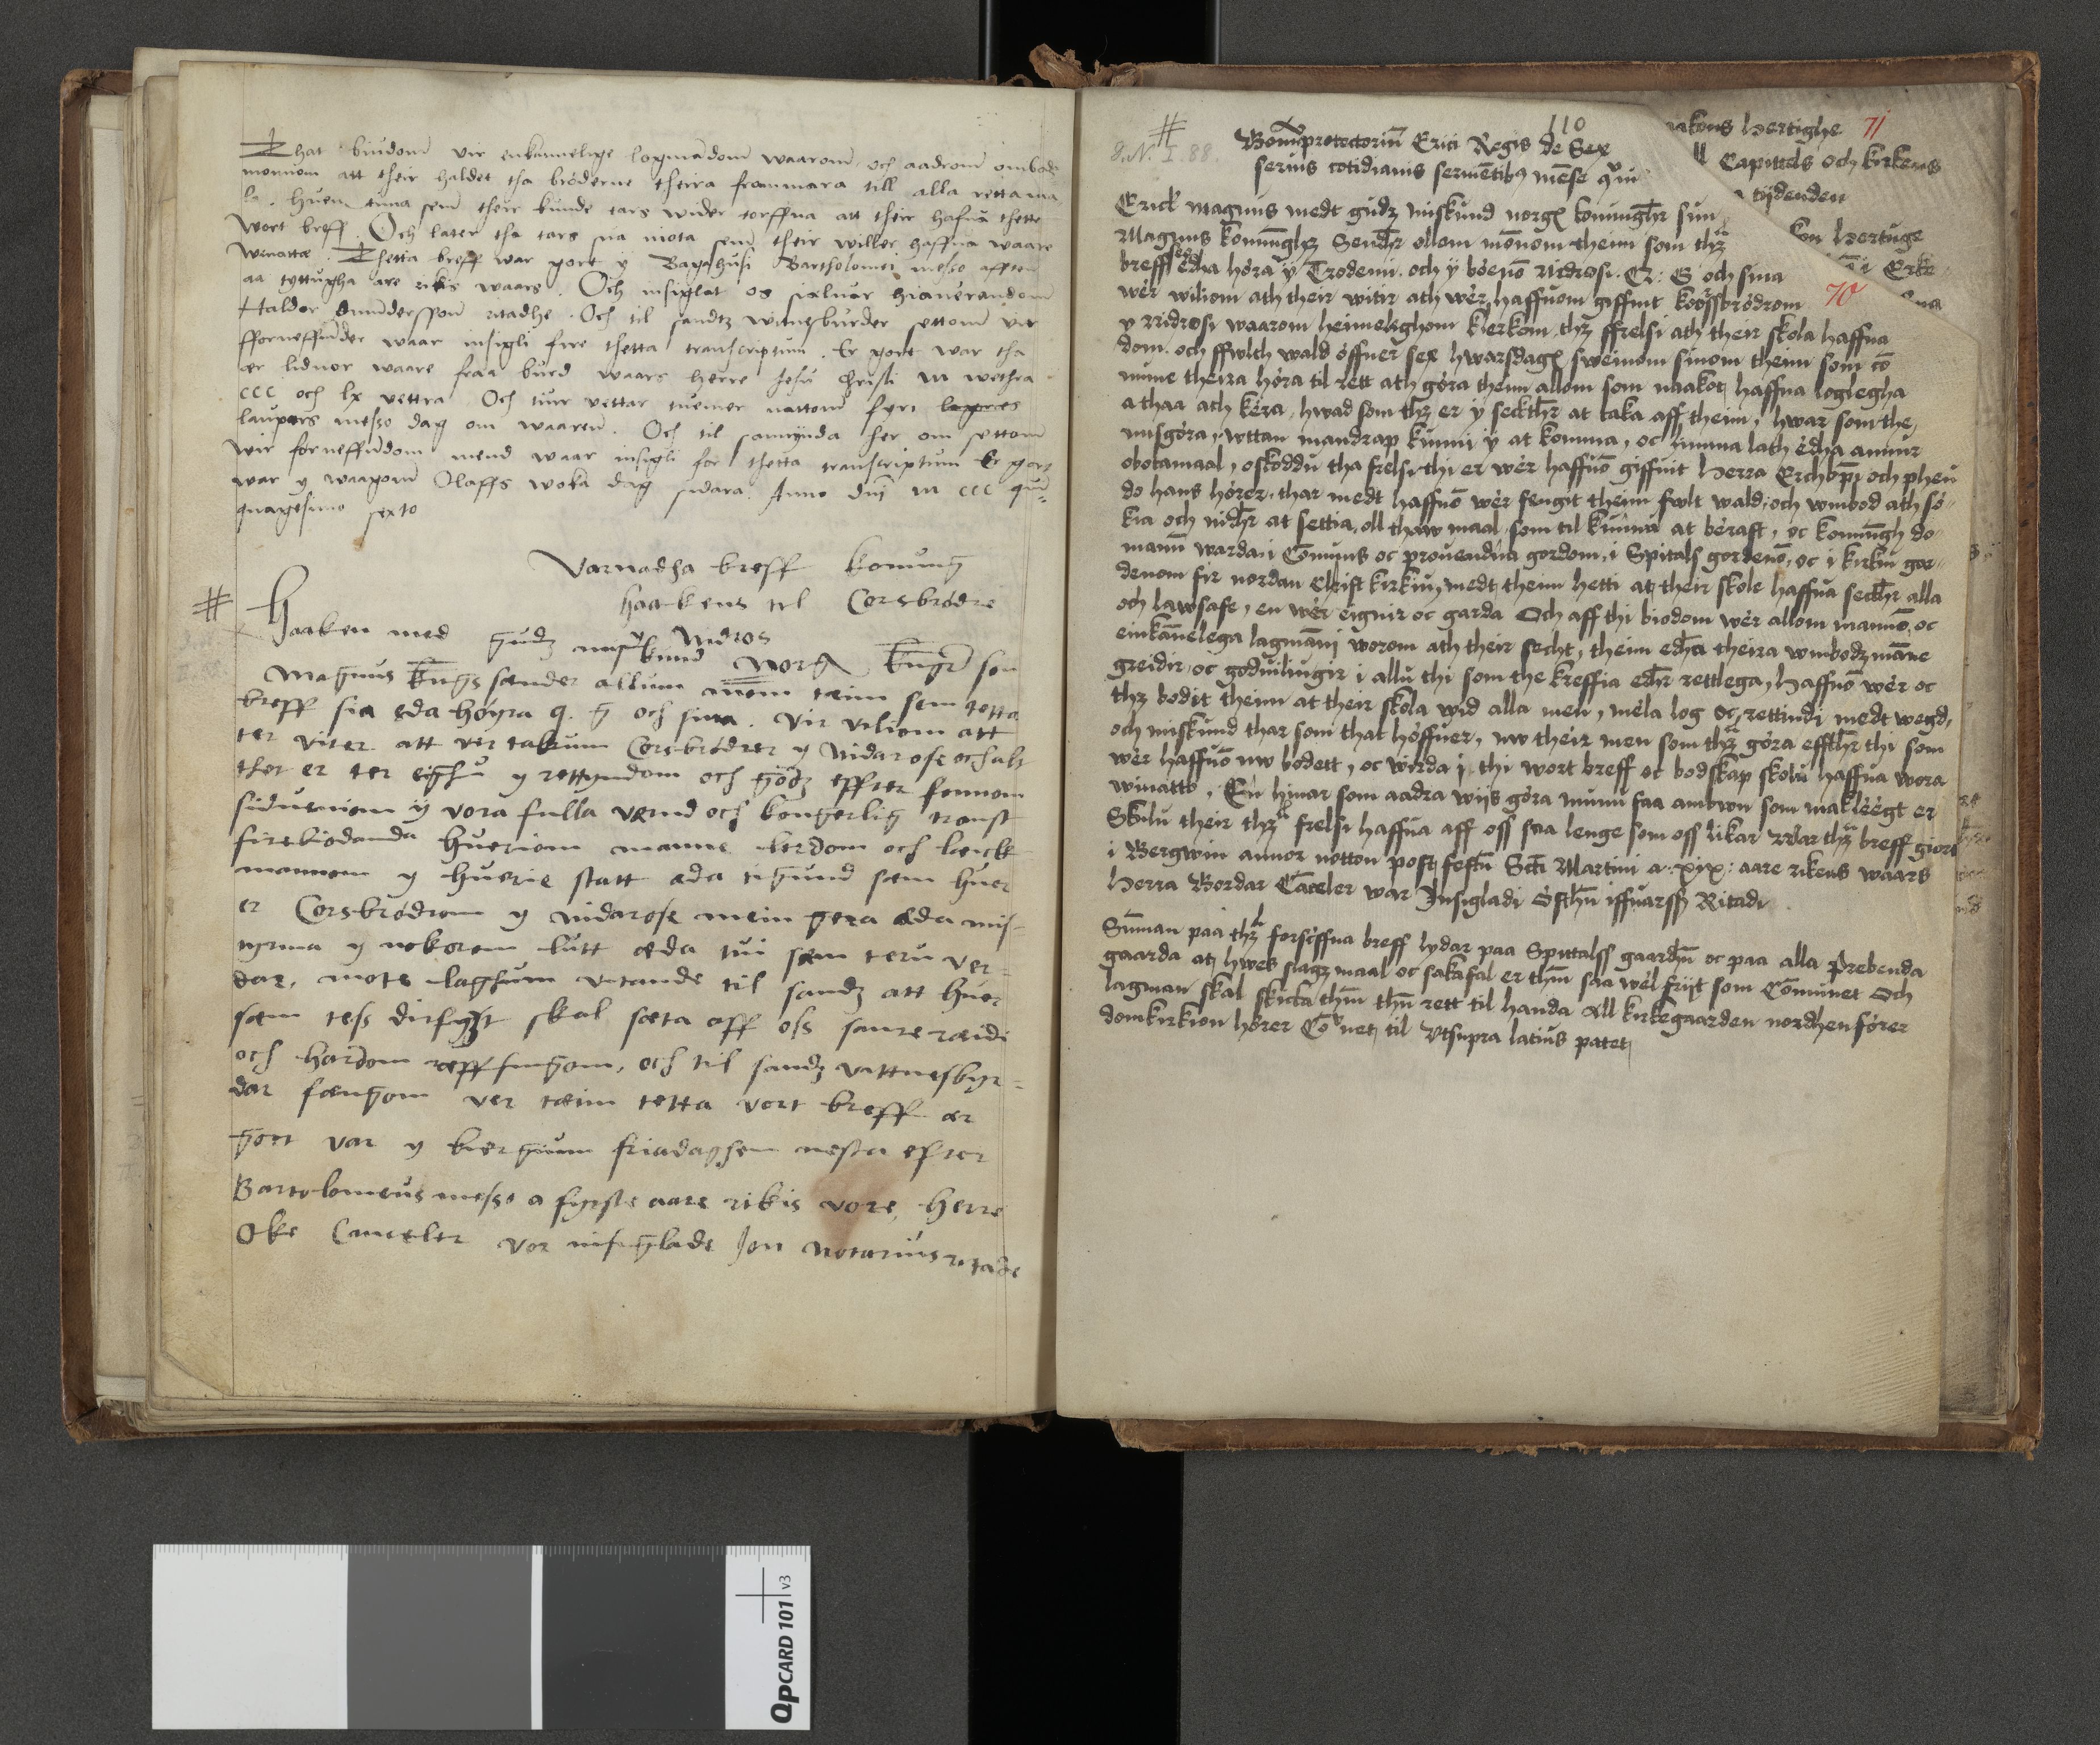 That biudom vir enkannelige logmadom waarom och aadrom ombodz
monnom att their haldet tha brøderne theira frammara till alla retta ma
la. huem tima sem their kunde tars wider torffua att their hafua thette
wort breff. Och later tha tars sua niota sem their willer haffua waare
wenatte. Thetta breff war gort y Bagahusi Bartholomei messo afften
aa tyttugha are rikis waars. Och insiglat os sielver hiaverandom
Haldor Amunderson ritadhe. Och til sandz witnesburder settom vir
fforneffnder waar insigli fire thetta transcriptum. Er gort war tha
er lidnor waare fraa burd waars herre Jesu Christi M wethra
ccc och lx vettra Och tuir vettar tuemer nattom fyri
laupars messo dag om waaren. Och til samynda her om settom
wir forneffndom mend waar insigli for thetta transcriptum Er gort
war y waagom Olaffs woka dag sidara. Anno dnj M ccc qua=
quagesimo sexto
Varnadha breff konung
haakens til Corsbrødre
y Nidros
Haaken med gudz miskund Norg kungr son
Magnus kungs sænder allum mom tæim sem tetta
breff sia eda høyra q. g och sina. Vir viliom att
ter viter att ver takum Corsbrødrer y Nidarose och alt
thet er ter eighu y rettyndom och godz effter fornom
sidueniom y vora fulla vernd och kongerlig traust
firebiodanda hueriom manne lerdom och læick
mannom y huerie statt æda tigund sem huer
er Corsbrødrom y Nidarose mein gera æda mis=
tyrma y nokorom lutt æda tui sem teru ver=
dar, mote laghum vtande til sandz att huer
sæm tess dirfuzt skal sæta off oss sanre ræidi
och hardom ræffsingom, och til sandz vattnesbyr=
dar fængom ver tæim tetta vort breff ær
gort var y biergwum friadaghen nesta efter
Bartolomeus messo a fyrste aare rikis vore, herre
Oke Canceler vor insiglade Jon notarius ritade
110
71
D.N. I. 88.
Bonū protectoriū Erici Regis de Sex
seruis cotidianis
akons hertighe
Capittels och kirkens
tijdenden
Erick Magnus medt gudz miskund norgs konunghr sun
Magnus konunghz Sendhr ollom monnom theim som thz
kon hertuge
breff see edha hora y Trodemi. och y bøenō Nidrosi. Q: G och sina
wer wiliom ath their witir ath wer haffuom giffuit koossbrødrom
70
y Nidrosi waarom heimelighom klerkom thz ffrelsi ath their skola haffua
dom. och ffwlth wald offuer sex hwarsdags sweinom sinom theim som co
mune theira høra til rett ath gøra theim allom som naakot haffua loglegha
a thaa ath kera, hwad som thz er y seckthr at taka aff theim, hwar som the
misgøra, wttan mandrap kunni y at komma, oc limma lath edha annur
obotamaal, oskoddu tha frelsi thi er wer haffuō giffuit Herra Erchbpi och pheu
do hans hører. thar medt haffuō wer fengit theim fwlt wald, och wmbod ath sø-
kia och nidhr at settia. oll thaw maal som til kunna at beraft, oc konungh do-
mann warda i Comuns oc prouendna gordom, i Spitals gordenō, oc i kirkiu gar-
denom fir nordan Christ kirkiu, medt theim hetti at their skole haffua seckthr alla
och lawsafe, en wer eignir oc garda Och aff thi biodom wer allom mannō, oc
einkannelega lagmāni worom ath their secht, theim edha theira wmbodzmāne
greidir oc goduiliugir i allu thi som the kreffia edhr rettlega, Haffuō wer oc
thz bodit theim at their skola wid alla men, mela log oc rettindi medt wegd,
och miskund thar som that høffuer, nw their men som thz gøra effthr thi som
wer haffuō nw bodett, oc wirda i thi wort breff oc bodskap skolu haffua wora
winatto, En hinar som aadra wijs gøra munu faa ambwn som makleegt er
Skulu their thz frelsi haffua aff oss saa lenge som oss likar War thz breff giort
i Bergwin annor notton post festū Scti Martini a. xix: aare rikens waars
Herra Bordar Cāceler war Insigladi Ofsthū iffuarssō Ritadi
Sūman paa thz forscffna breff lydar paa Spittalss gaardū oc paa alla prebenda
gaarda at hwes slagz maal oc sakafal er thm saa wel frijt som Cōmunet Och
lagman skal skicka thm thn rett til handa All kirkegaarden nordhen fører
domkirkion hører Cōnet til Vtsupra latius patet